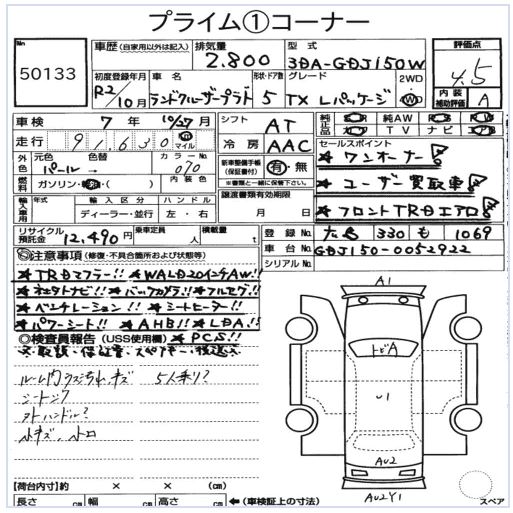 プライム①コーナー
No 50133
車歴 (自家用以外は記入) 排気量 2.800 型式 3DA-GDJ150W 評価点 4.5
初度登録年月 R2/10月 車名 ランドクルーザープラド 形状・ドア数 5 グレード TX Lパッケージ 2WD 4WD 内装補助評価 A
車検 7年10/27月 シフト AT 純正品 純AW
走行 91630 km マイル 冷房 AAC TV ナビ
外色 元色 パール 色替 カラーNo 070 新車整備手帳(保証書付) 有・無 ※書類と一緒に保管して下さい。
セールスポイント
★ワンオーナー
燃料 ガソリン・ ・( ) 内装色
★ユーザー買取車
輸入車用 年式 輸入区分 ディーラー・並行 ハンドル 左・右 譲渡書類有効期限 月 日
★フロントTRDエアロ
リサイクル預託金 12,490円 乗車定員 人 積載量 t 登録No 330 も 1069
車台No GDJ150-0052922
シリアルNo
◎注意事項 (修復・不具合箇所および状態等)
★TRDマフラー!! ★WALD20インチAW!!
★ネオタトナビ!! ★バックカメラ!! ★フルセグ!!
★ベンチレーション!! ★シートヒーター!!
★パワーシート!! ★AHB!! ★LDA!!
◎検査員報告 (USS使用欄) ★PCS!!
※取説・保証書・スペアキー・後送
キズ 5人乗り?
ハンドル?
A1
トビA
U1
AU2
AU2Y1
スペア
【荷台内寸】約 × × (cm)
長さ cm 幅 cm 高さ cm ←(車検証上の寸法)